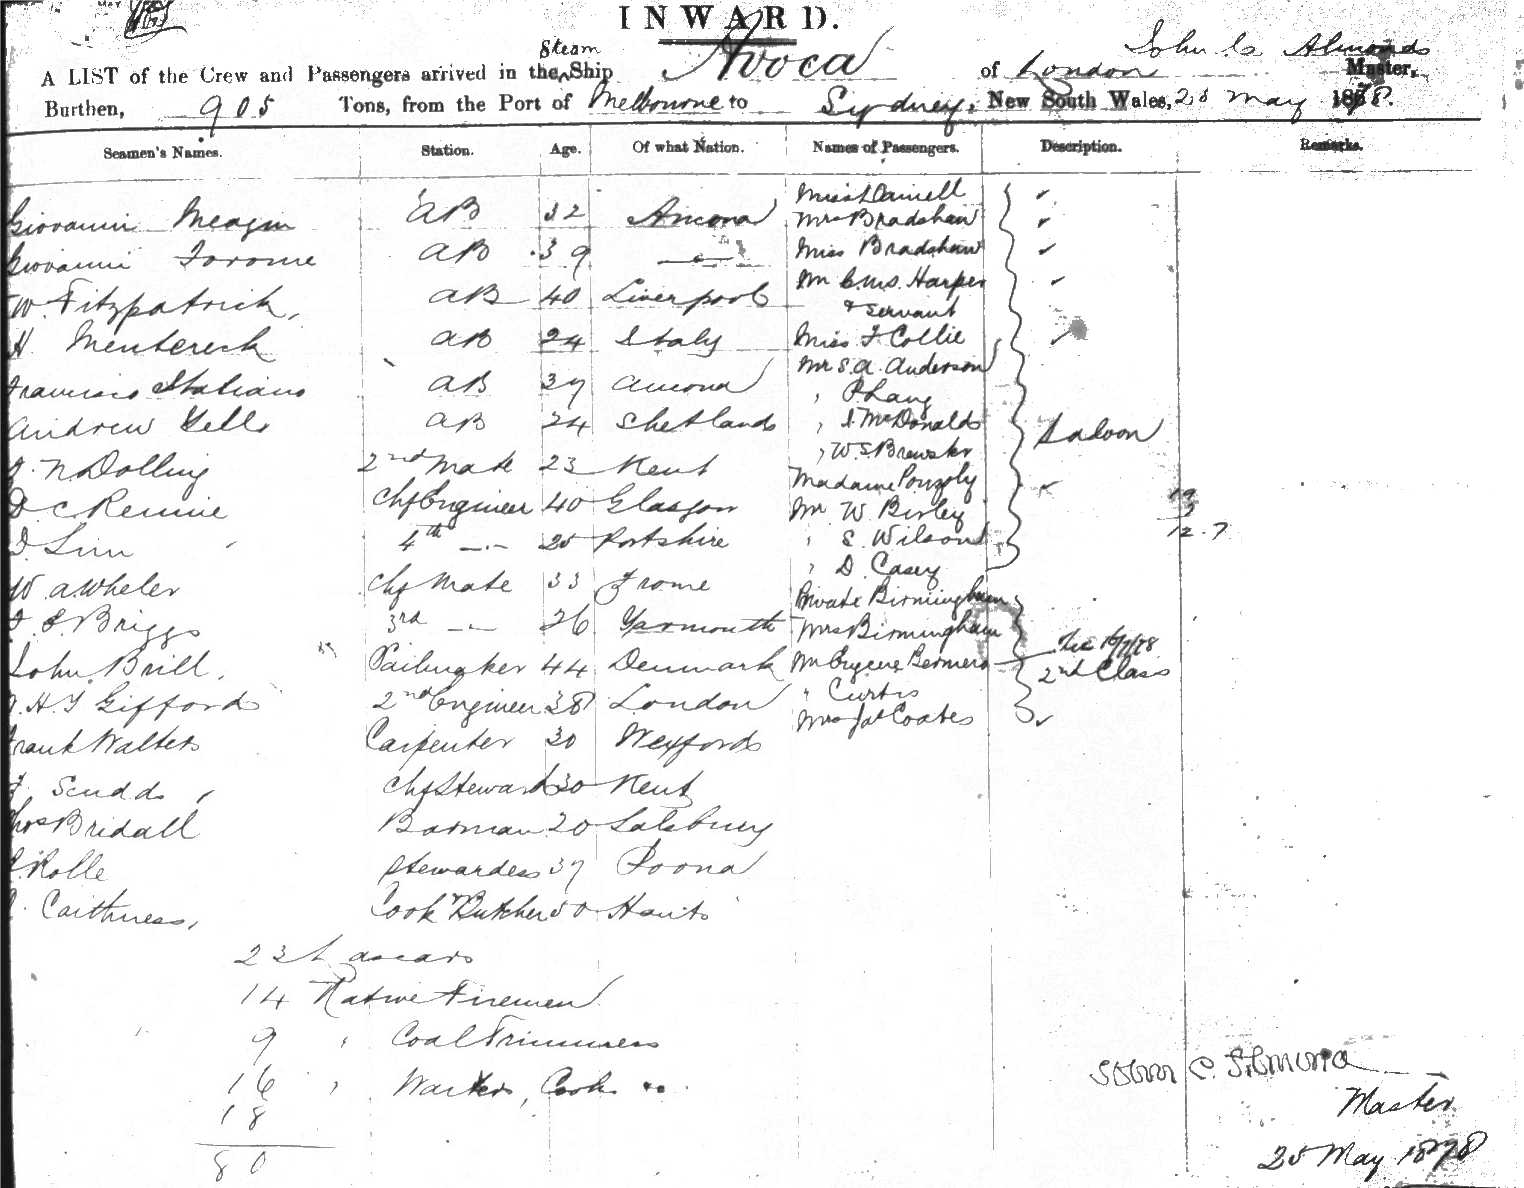 INWARD.
Steam
John C. Almond
A LIST of the Crew and Passengers arrived in the Ship Avoca of London Master,
Burthen, 905 Tons, from the Port of Melbourne to Sydney, New South Wales, 25 May 1878.
Seamen's Names. Station. Age. Of what Nation. Names of Passengers. Description. Remarks.
Giovanni AB 32 Ancona
Giovanni AB 39 —"—
W. Fitzpatrick, AB 40 Liverpool
H AB 24 Italy
Francisco Italiano AB 37 Ancona
Andrew AB 24 Shetlands
J. N. Dolling 2nd Mate 23 Kent
D. C Rennie Chf Engineer 40 Glasgow
4th —"— 25
W. A. Wheler Chf Mate 33 Frome
J. S. Briggs 3rd —"— 26 Yarmouth
John Brill, Sailmaker 44 Denmark
H. J Gifford 2nd Engineer 38 London
Frank Walters Carpenter 30 Wexford
Chf Steward 30 Kent
Thos Bridall Barman 20 Salsbury
Rolle Stewardess 37 Poona
Caithness, Cook & Butcher 50 Hants
Miss
Mrs Bradshaw
Miss Bradshaw
Mr C.W.S. Harper
& Servant
Miss F Collie
Mr S. A. Anderson
" P. Lang
" J. McDonald
" W. S. Brewster
Madame
Mr W. Birley
" S. Wilson
" D. Casey
Saloon
Private Birmingham
Mrs Birmingham
Mr Eugene
" Curtis
Mrs Jas Coates
2nd Class
12.7
23 Lascars
14 Native Firemen
9 " Coal Trimmers
16 " Waiters, Cooks &c
18
80
John C. Almond
Master
25 May 1878